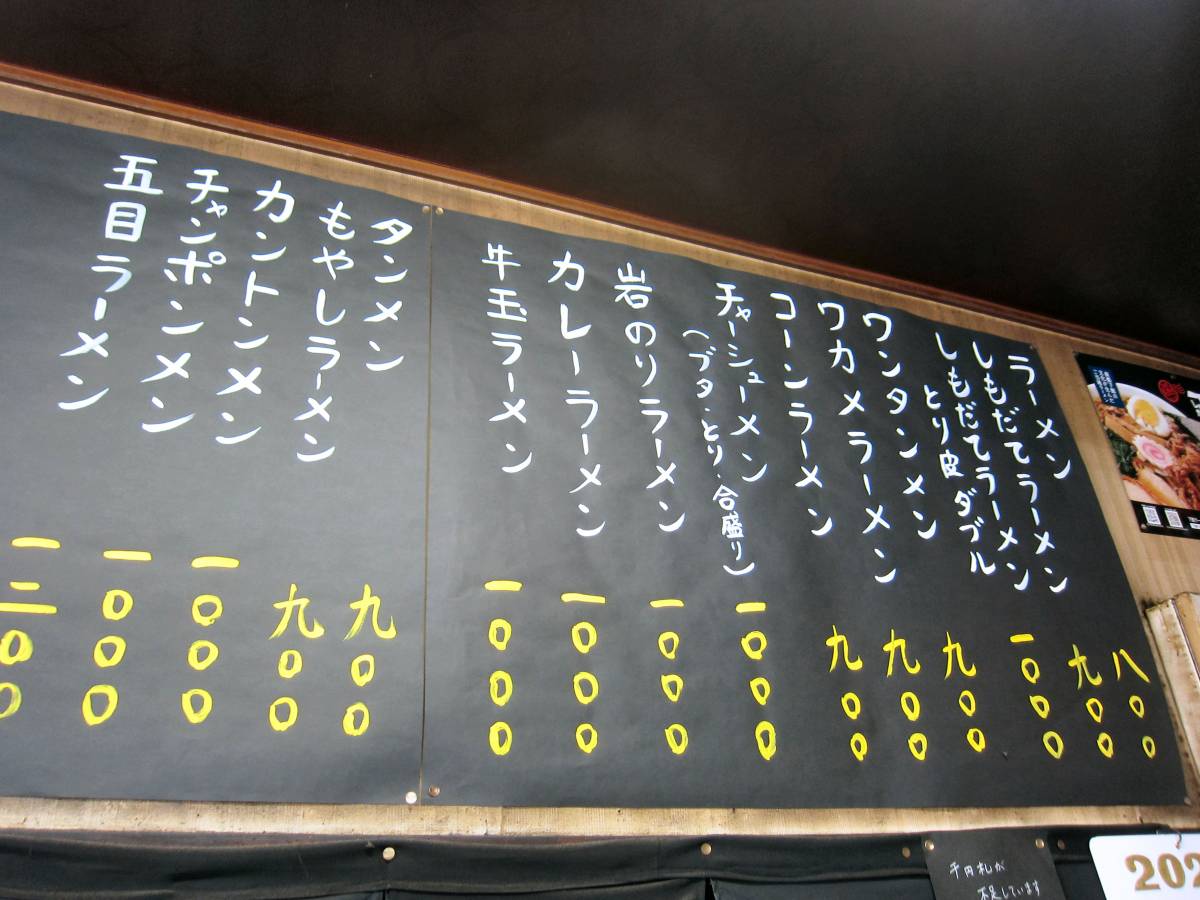 ラーメン 八〇〇
しもだてラーメン 九〇〇
しもだてラーメン とり皮ダブル 一〇〇〇
ワンタンメン 九〇〇
ワカメラーメン 九〇〇
コーンラーメン 九〇〇
チャーシューメン 一〇〇〇
(ブタ・とり・合盛り)
岩のりラーメン 一〇〇〇
カレーラーメン 一〇〇〇
牛玉ラーメン 一〇〇〇
タンメン 九〇〇
もやしラーメン 九〇〇
カントンメン 一〇〇〇
チャンポンメン 一〇〇〇
五目ラーメン 一二〇〇
千円札が
不足しています
202